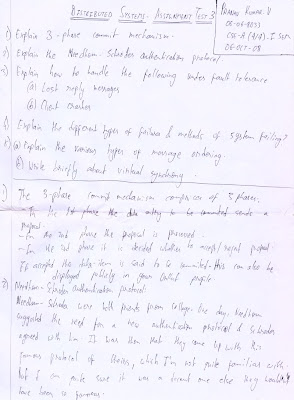 DISTRIBUTED SYSTEMS - ASSIGNMENT TEST 3
KUMAR. V
06-OCT-08
1) Explain 3-phase commit mechanism.
2) Explain the Needham-Schroder authentication protocol.
3) Explain how to handle the following under fault tolerance
(a) Lost reply messages
(b) Client crashes
4) Explain the different types of failures & methods of system failing?
5) (a) Explain the various types of message ordering.
(b) Write briefly about virtual synchrony.
1) The 3-phase commit mechanism comprises of 3 phases.
- In the 1st phase the data entry to be committed sends a
proposal.
- In the 2nd phase the proposal is processed.
- In the 3rd phase it is decided whether to accept/reject proposal.
If accepted the data-item is said to be committed. This can also be
displayed publicly in your
2) Needham-Schroder authentication protocol:
Needham-Schroder were both friends from college. One day, Needham
suggested the need for a new authentication protocol & Schroder
agreed with him. It was then that they came up with this
famous protocol of theirs, which I'm not quite familiar with.
but I am quite sure it was a decent one else they wouldn't
have been so famous.